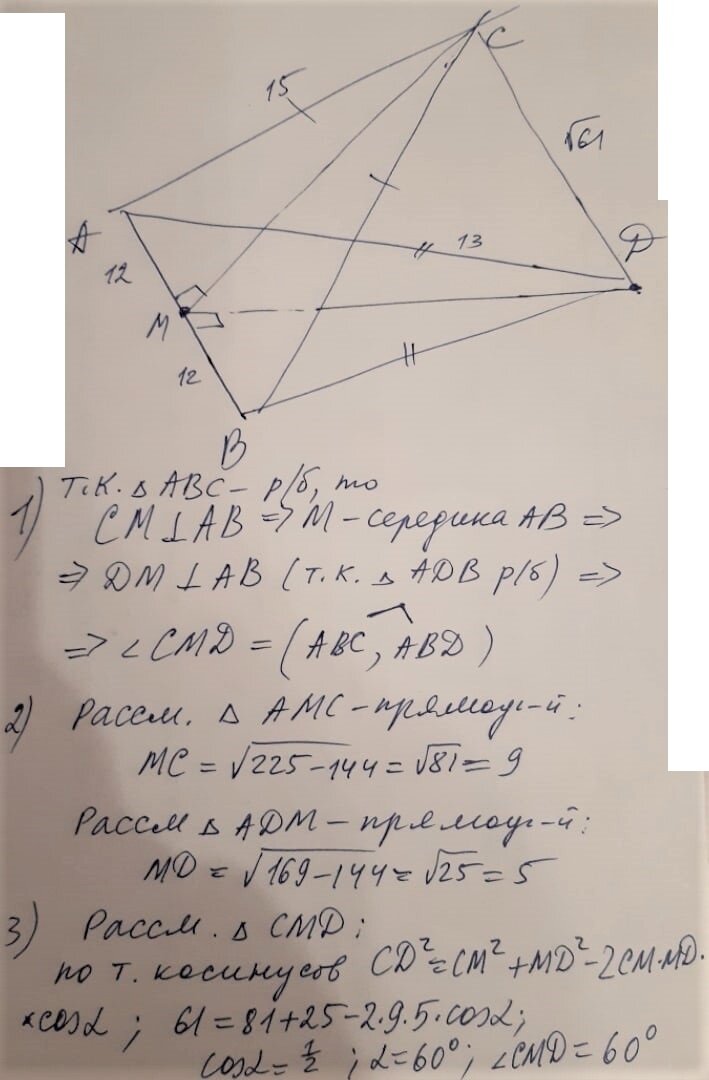 C
15
√61
A
13
D
12
M
12
B
1) т.к. △ ABC – р/б, то
CM ⊥ AB ⇒ M – середина AB ⇒
⇒ DM ⊥ AB (т.к. △ ADB р/б) ⇒
⇒ ∠ CMD = (ABC, ^ ABD)
2) Рассм. △ AMC – прямоуг-й:
MC = √225-144 = √81 = 9
Рассм △ ADM – прямоуг-й:
MD = √169-144 = √25 = 5
3) Рассм. △ CMD:
по т. косинусов CD² = CM² + MD² - 2CM·MD·
×cosα ; 61 = 81+25-2·9·5·cosα;
cosα = 1/2 ; α = 60°; ∠CMD = 60°